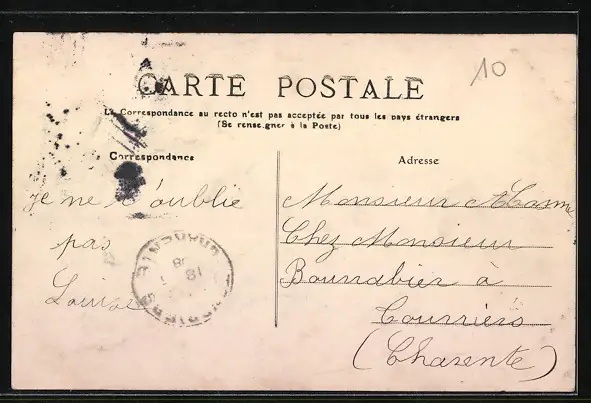 10
CARTE POSTALE
La Correspondance au recto n'est pas acceptée par tous les pays étrangers
(Se renseigner à la Poste)
Correspondance
Adresse
Je ne t'oublie
pas
Louise
Monsieur
Chez Monsieur
à
Courriers
(Charente)
CHARENTE
18